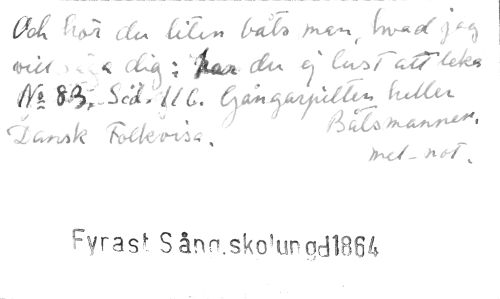 Och hör du liten båts man, hvad jag
vill säga dig: har du ej lust att leka
No 83, Sid. 116. Gångarpilten heller
Båtsmannen.
Dansk Folkvisa.
met-not.
Fyrast Sång.skolungd1864